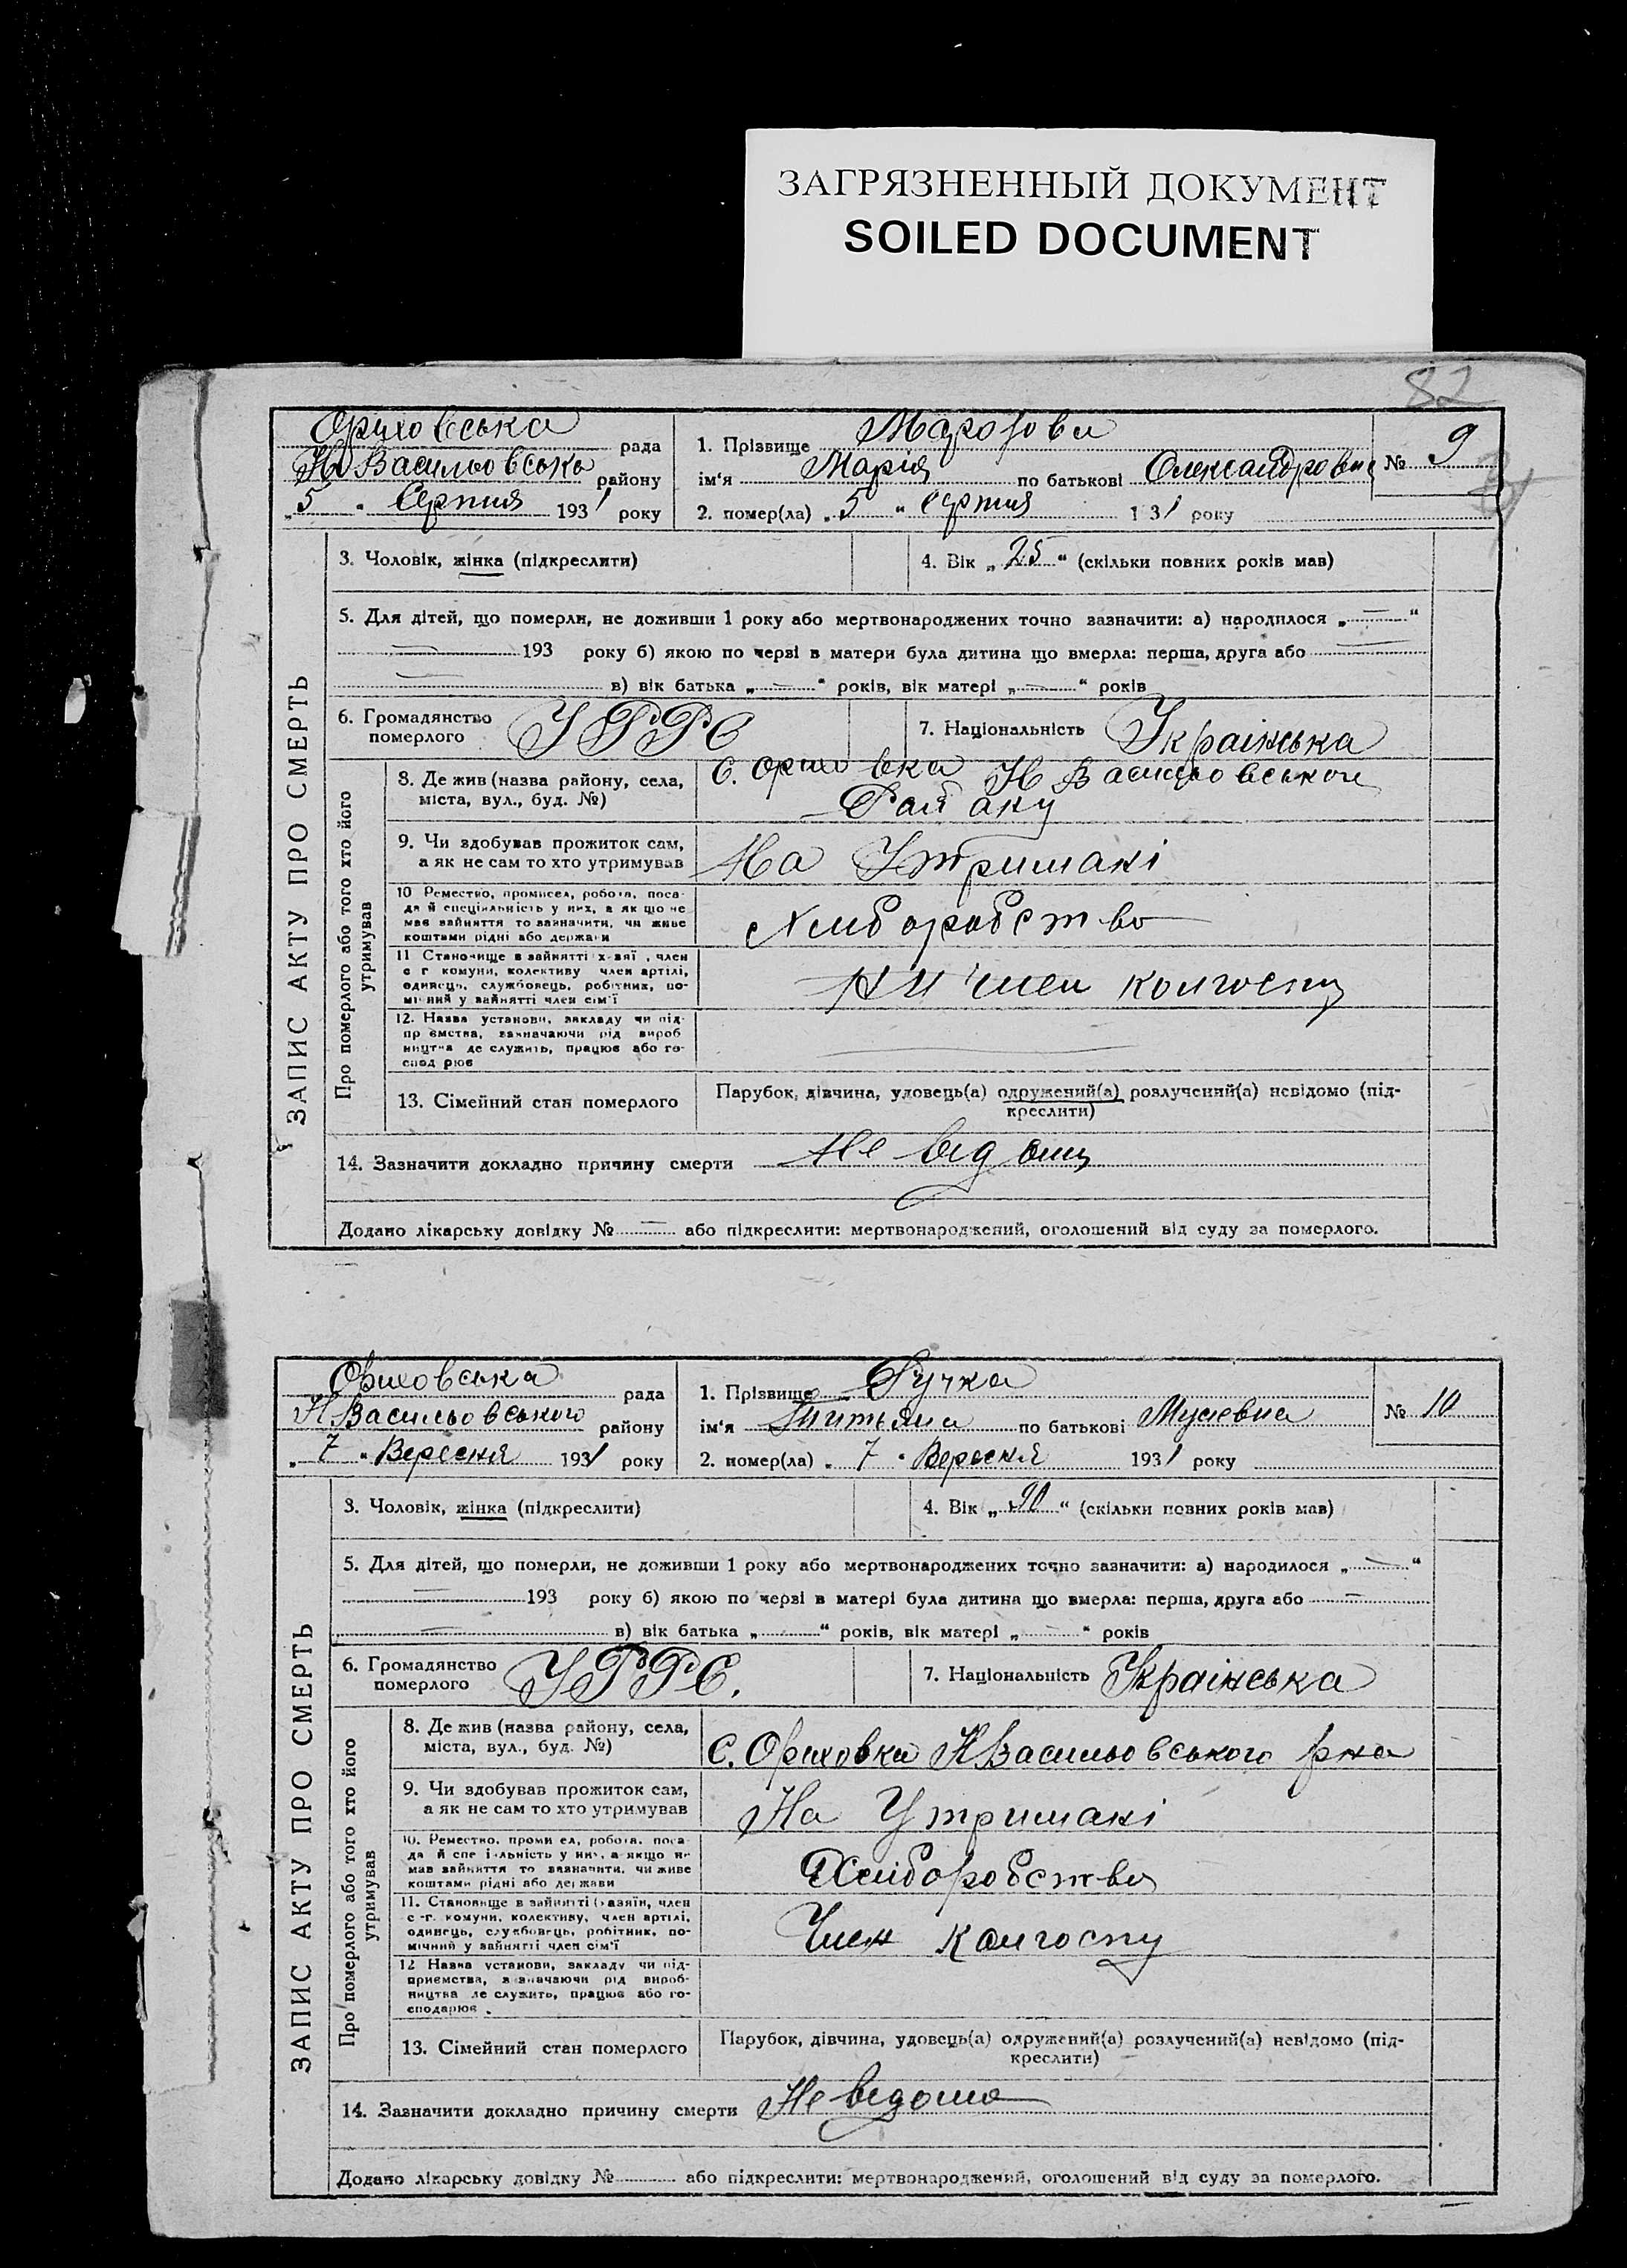 ЗАГРЯЗНЕННЫЙ ДОКУМЕНТ
SOILED DOCUMENT
82
Ориховська рада
Н Васильовсько району
„5 “ Серпня 1931 року
1. Прізвище Марозова
ім'я Марія по батькові Олександровне
№ 9
2. помер(ла) „5 “ серпня 1 31 року
ЗАПИС АКТУ ПРО СМЕРТЬ
3. Чоловік, жінка (підкреслити)
4. Вік „25“ (скільки повних років мав)
5. Для дітей, що померли, не доживши 1 року або мертвонароджених точно зазначити: а) народилося „—“
— 193 року б) якою по черзі в матери була дитина що вмерла: перша, друга або —
— в) вік батька „—“ років, вік матері „—“ років
6. Громадянство
померлого
УРРС
7. Національність Українська
Про померлого або того хто його
утримував
8. Де жив (назва району, села,
міста, вул., буд. №)
С. Ориховка Н Васильовськои
Райаку
9. Чи здобував прожиток сам,
а як не сам то хто утримував
На Утримані
10 Ремество, промисел, робота, поса-
да й спеціяльність у них, а як що не
мав зайняття то зазначити, чи живе
коштами рідні або держави
Хлиборобство
11 Становище в зайнятті х-зяї , член
с г комуни, колективу член артілі,
одинець, службовець, робітник, по-
мі ний у зайнятті член сім'ї
член колгоспу
12. Назва установи, закладу чи під-
пр ємства, зазначаючи рід вироб
ництва де служить, працює або го-
спод рює
13. Сімейний стан померлого
Парубок, дівчина, удовець(а) одружений(а) розлучений(а) невідомо (під-
креслити)
14. Зазначити докладно причину смерти Не відому
Додано лікарську довідку № — або підкреслити: мертвонароджений, оголошений від суду за померлого.
Ориховська рада
Н Васильовського району
„ 7 “ Вересня 1931 року
1. Прізвище Ручка
ім'я Титьяна по батькові Мусіевна
№ 10
2. помер(ла) „ 7 “ Вересня 1931 року
ЗАПИС АКТУ ПРО СМЕРТЬ
3. Чоловік, жінка (підкреслити)
4. Вік „90“ (скільки повних років мав)
5. Для дітей, що померли, не доживши 1 року або мертвонароджених точно зазначити: а) народилося „—“
— 193 року б) якою по черзі в матері була дитина що вмерла: перша, друга або —
— в) вік батька „ “ років, вік матері „—“ років
6. Громадянство
померлого
УРРС.
7. Національність Українська
Про померлого або того хто його
утримував
8. Де жив (назва району, села,
міста, вул., буд. №)
С. Ориховка Н Васильовського р на
9. Чи здобував прожиток сам,
а як не сам то хто утримував
На Утримані
10. Ремество, проми ел, робота, поса-
да й спе і льність у них, а якщо не
мав зайняття то зазначити, чи живе
коштами рідні або держави
Хлиборобство
11. Становище в зайнятті (хазяїн, член
с-г. комуни, колективу, член артілі,
одинець, службовець, робітник, по-
мічний у зайнятті член сім'ї
Член колгоспу
12 Назва установи, закладу чи під-
приємства, зазначаючи рід вироб-
ництва де служить, працює або го-
сподарює .
13. Сімейний стан померлого
Парубок, дівчина, удовець(а) одружений(а) розлучений(а) невідомо (під-
креслити)
14. Зазначити докладно причину смерти Не відома
Додано лікарську довідку № або підкреслити: мертвонароджений, оголошений від суду за померлого.